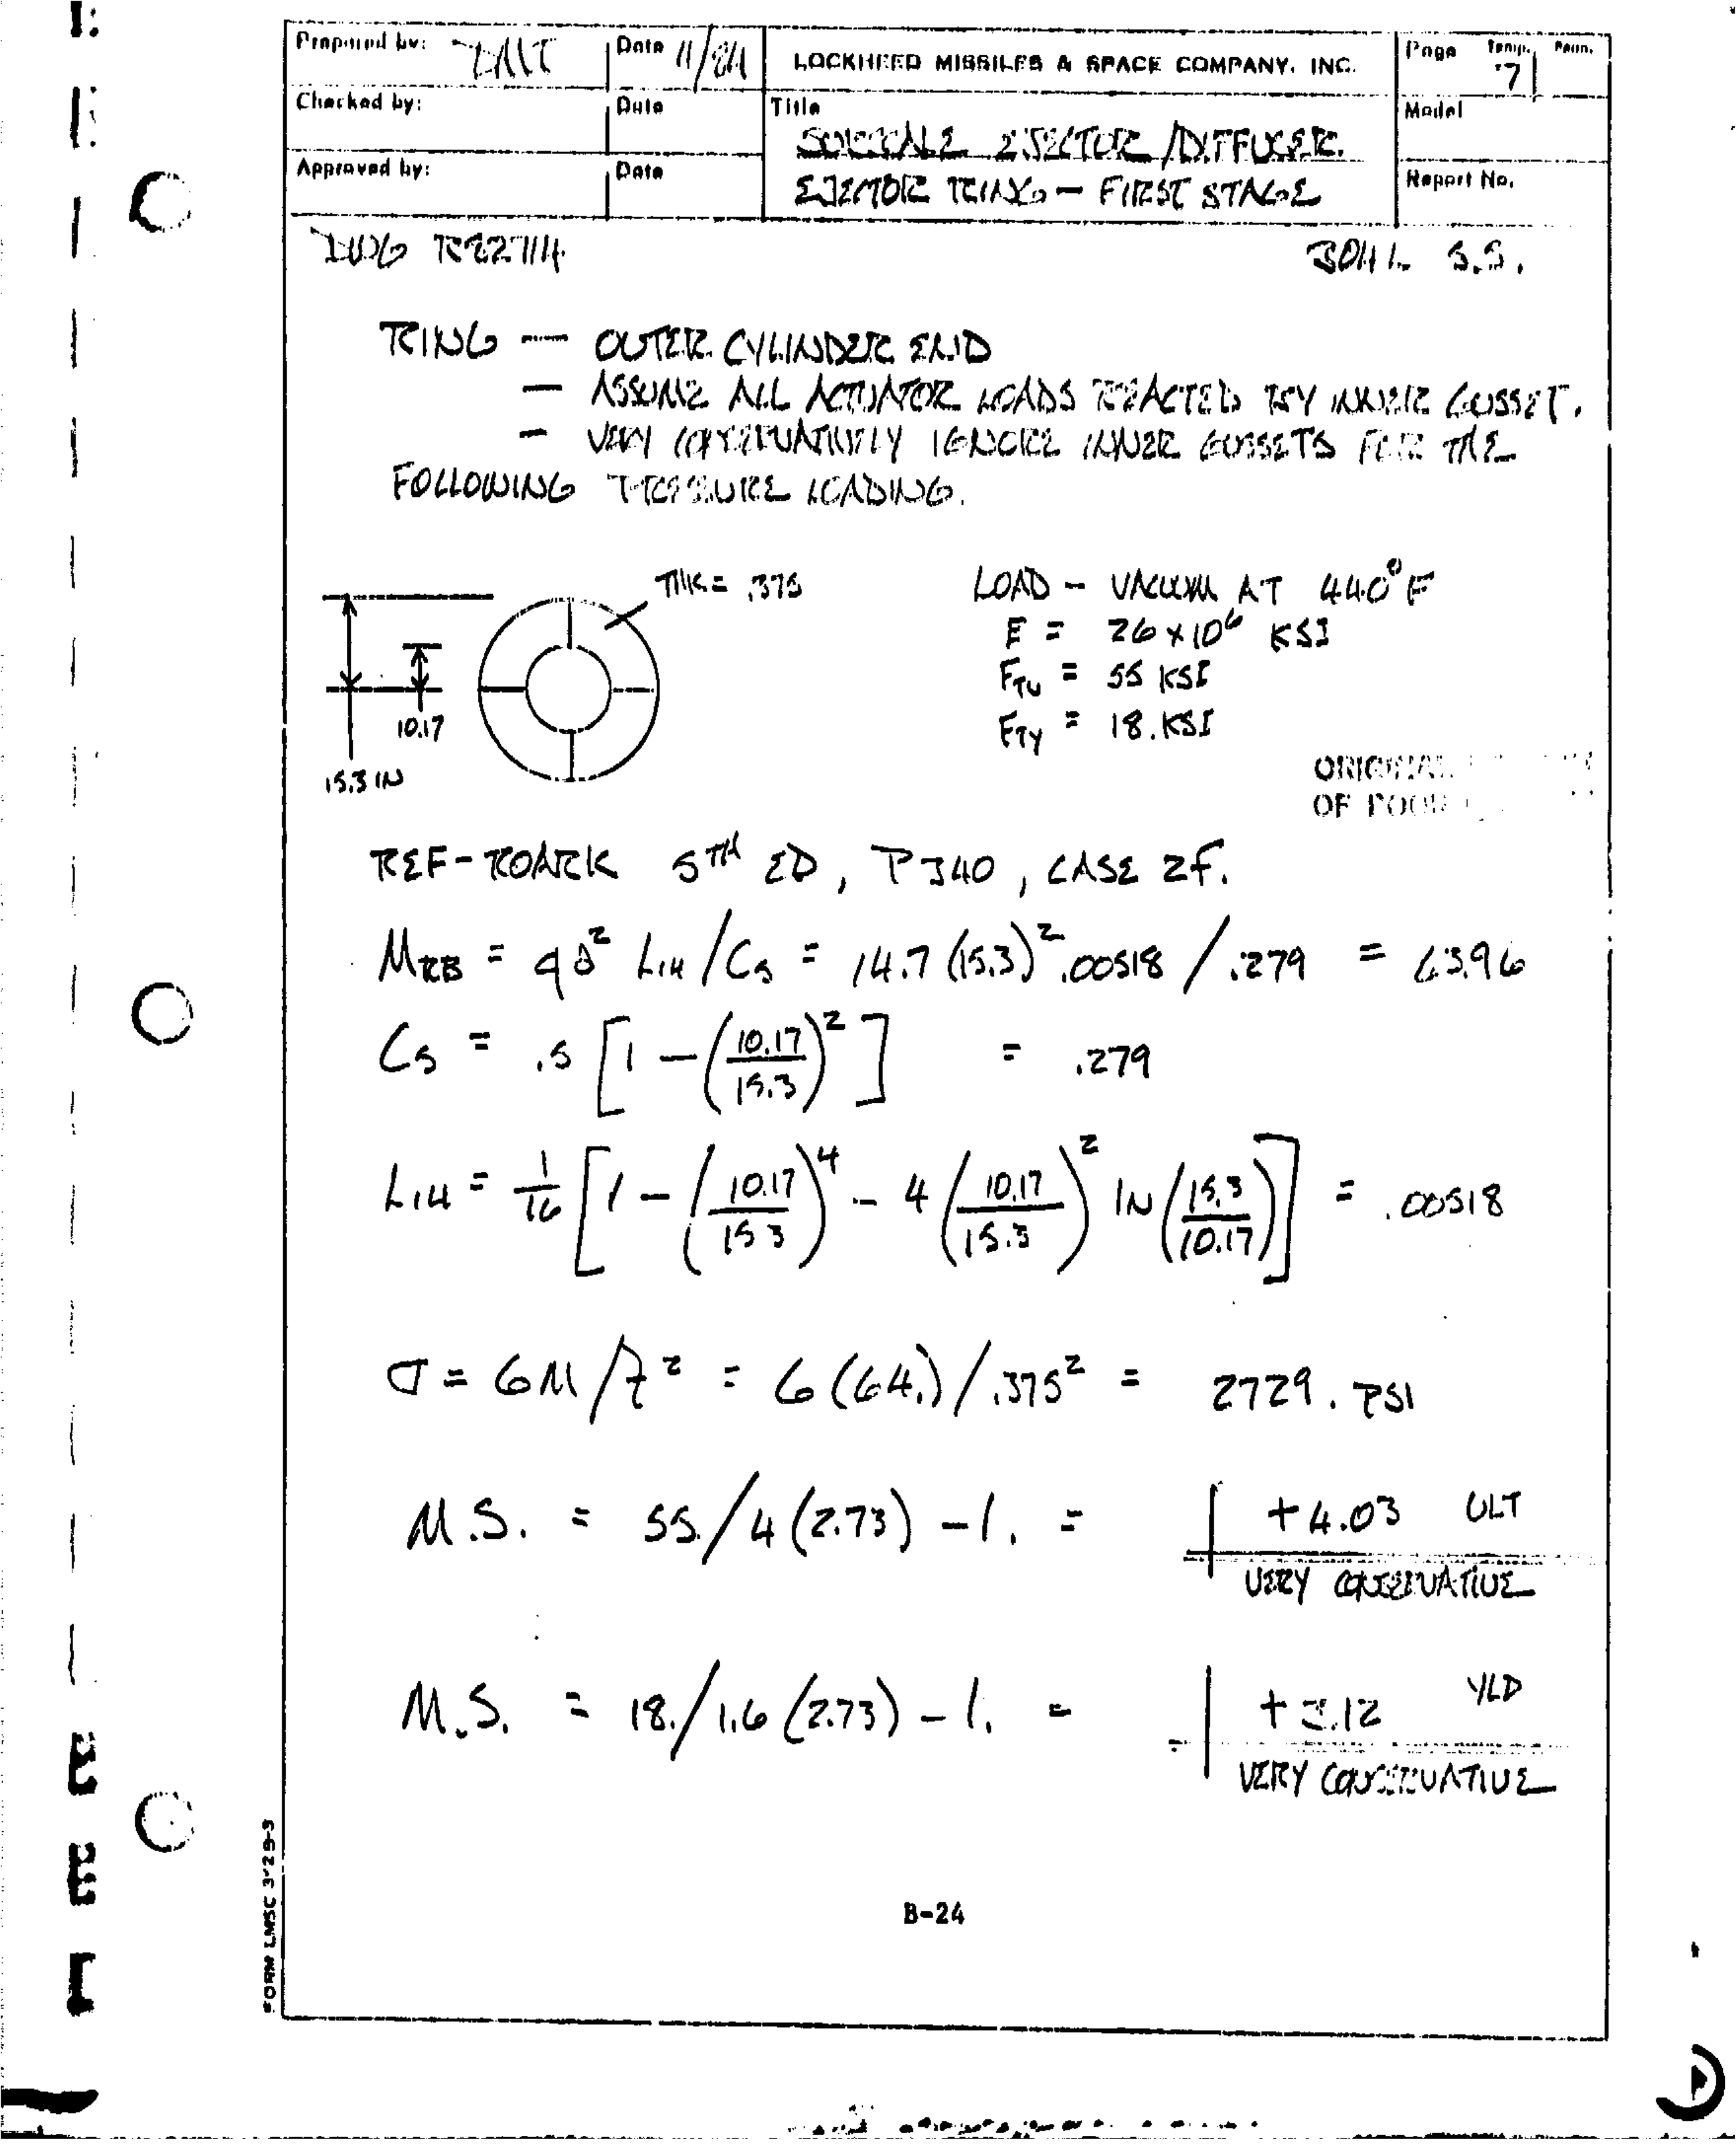 Prepared by: Date 11/84 LOCKHEED MISSILES & SPACE COMPANY, INC. Page Temp. Perm.
7
Checked by: Date Title Model
SUBSCALE EJECTOR/DIFFUSER
Approved by: Date EJECTOR RING — FIRST STAGE Report No.
DWG R22714 304 L S.S.
RING — OUTER CYLINDER END
— ASSUME ALL ACTUATOR LOADS REACTED BY INNER GUSSET.
— VERY CONSERVATIVELY IGNORE INNER GUSSETS FOR THE
FOLLOWING PRESSURE LOADING.
THK = .375
LOAD - VACUUM AT 440°F
E = 26 x 10⁶ KSI
FTU = 55 KSI
FTY = 18. KSI
10.17
15.3 IN
ORIGINAL
OF POOR
REF - ROARK 5TH ED, P340, CASE 2f.
MRB = qa² L14/C8 = 14.7 (15.3)² .00518 / .279 = 63.96
C8 = .5 [1 - (10.17/15.3)²] = .279
L14 = 1/16 [1 - (10.17/15.3)⁴ - 4 (10.17/15.3)² ln (15.3/10.17)] = .00518
σ = 6M/t² = 6(64.)/.375² = 2729. PSI
M.S. = 55./4(2.73) - 1. = +4.03 ULT
VERY CONSERVATIVE
M.S. = 18./1.6(2.73) - 1. = +3.12 YLD
VERY CONSERVATIVE
FORM LMSC 3729-3
B-24